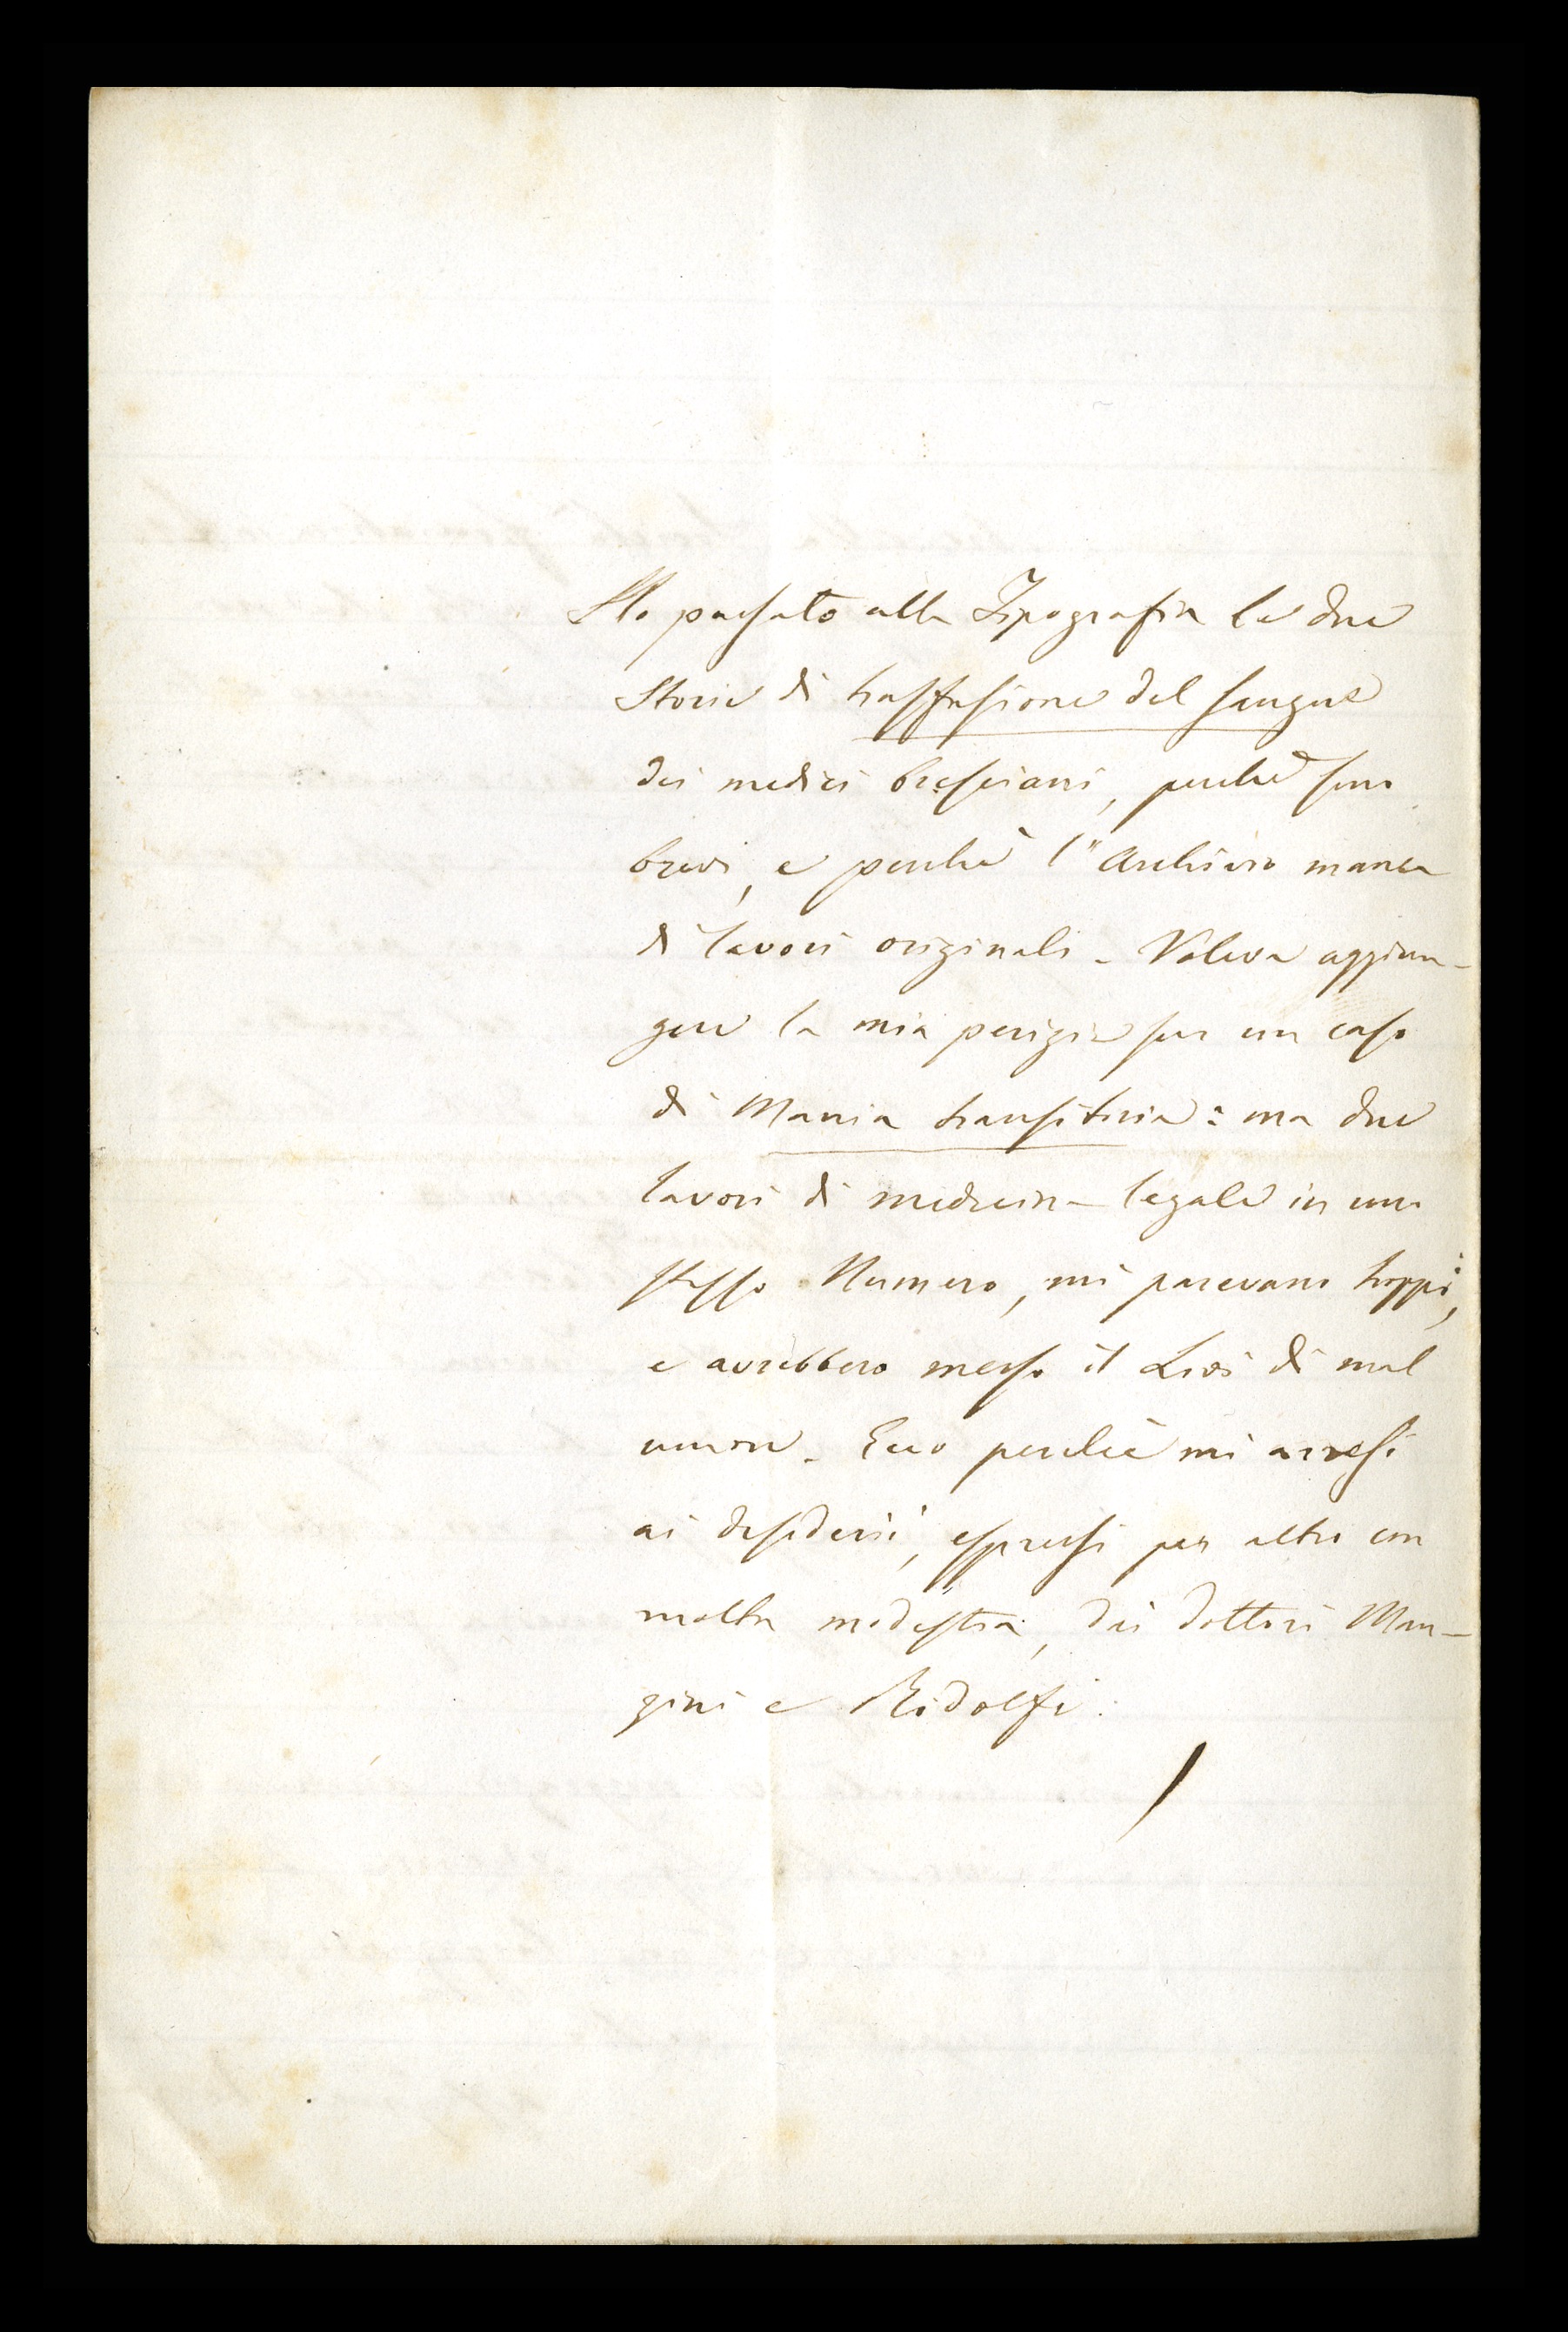 Ho passato alla Tipografia le due
Storie di trasfusione del sangue
dei medici bresciani, perchè sono
brevi, e perchè l'Archivio manca
di lavori originali. Voleva aggiun-
gere la mia perizia su un caso
di Mania transitoria: ma due
lavori di medicina legale in uno
stesso Numero, mi parevano troppi,
e avrebbero messo il Livi di mal
umore. Ecco perchè mi arresi
ai desiderii, espressi per altro con
molta modestia, dai dottori Man-
zini e Ridolfi.